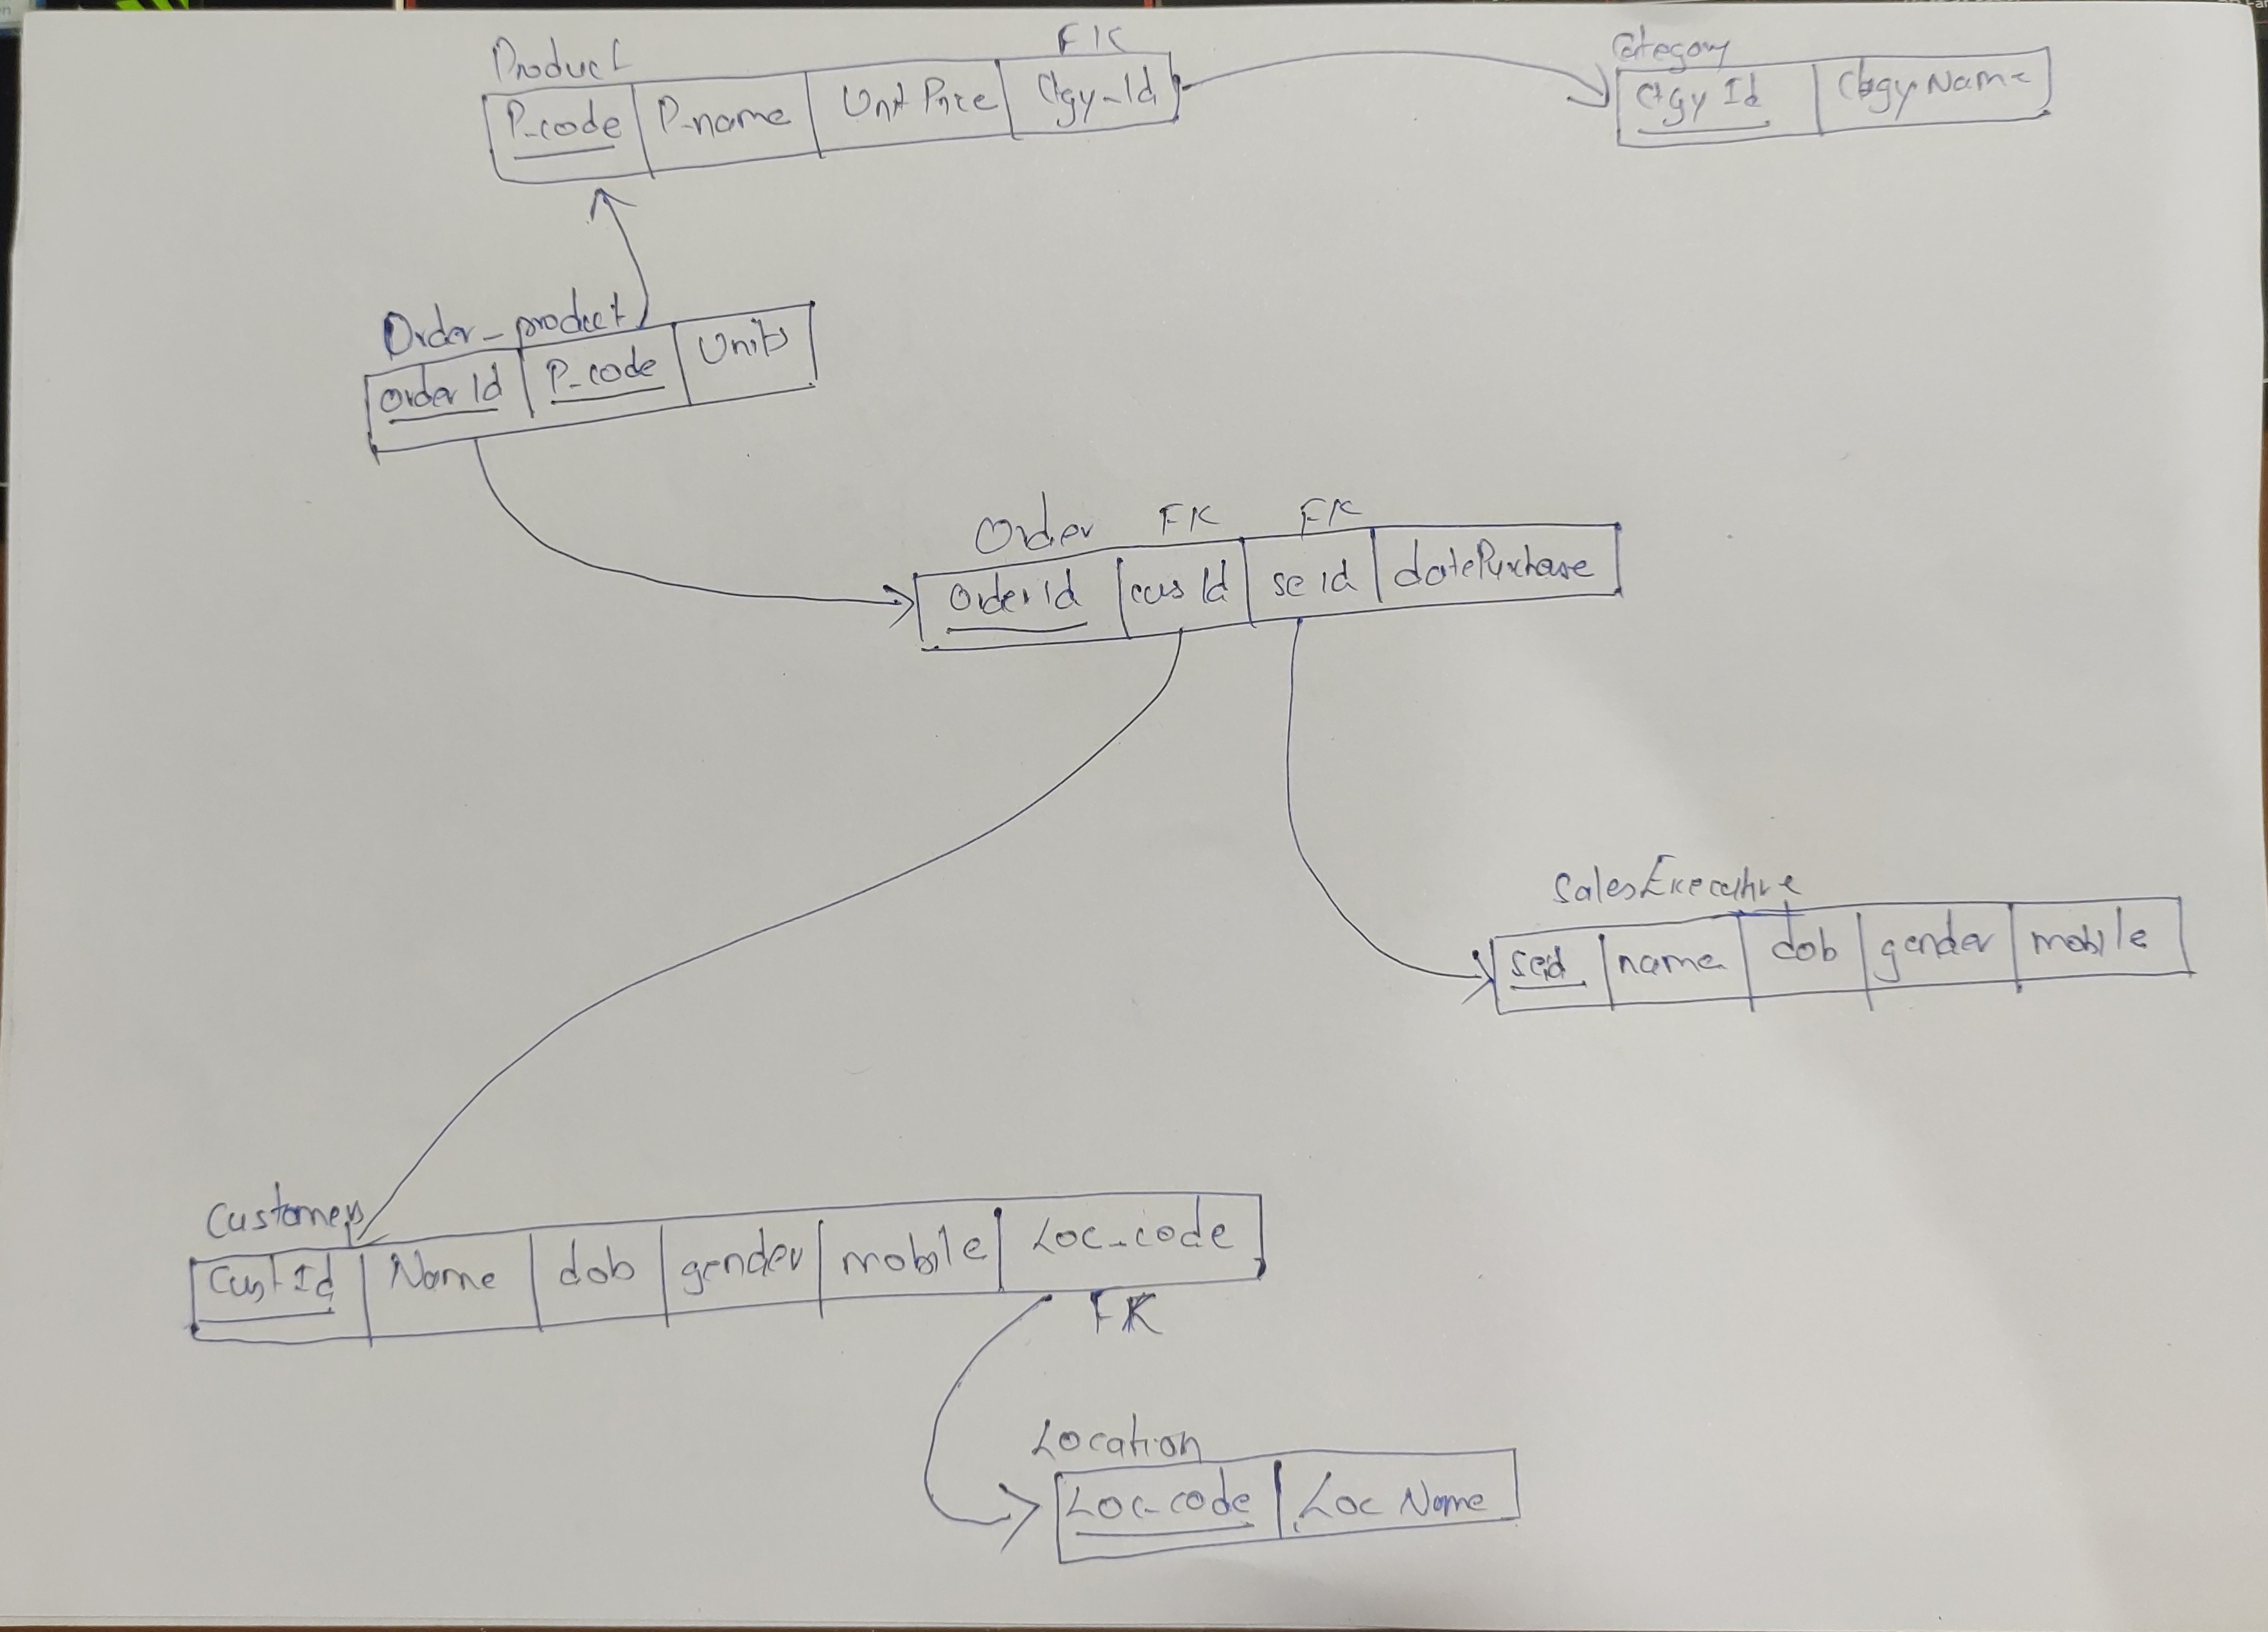 Product FK
P-code P-name Unit Price Ctgy-Id
Category
Ctgy Id Ctgy Name
Order-product
Order Id P-code Units
Order FK FK
Order Id cus Id se id datePurchase
SalesExecutive
seid name dob gender mobile
Customers
Cust Id Name dob gender mobile Loc-code
FK
Location
Loc-code Loc Name